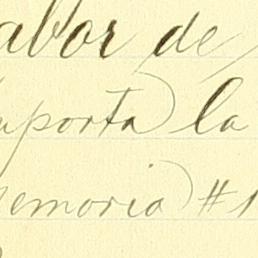 abor de
mporta la
memoria #1